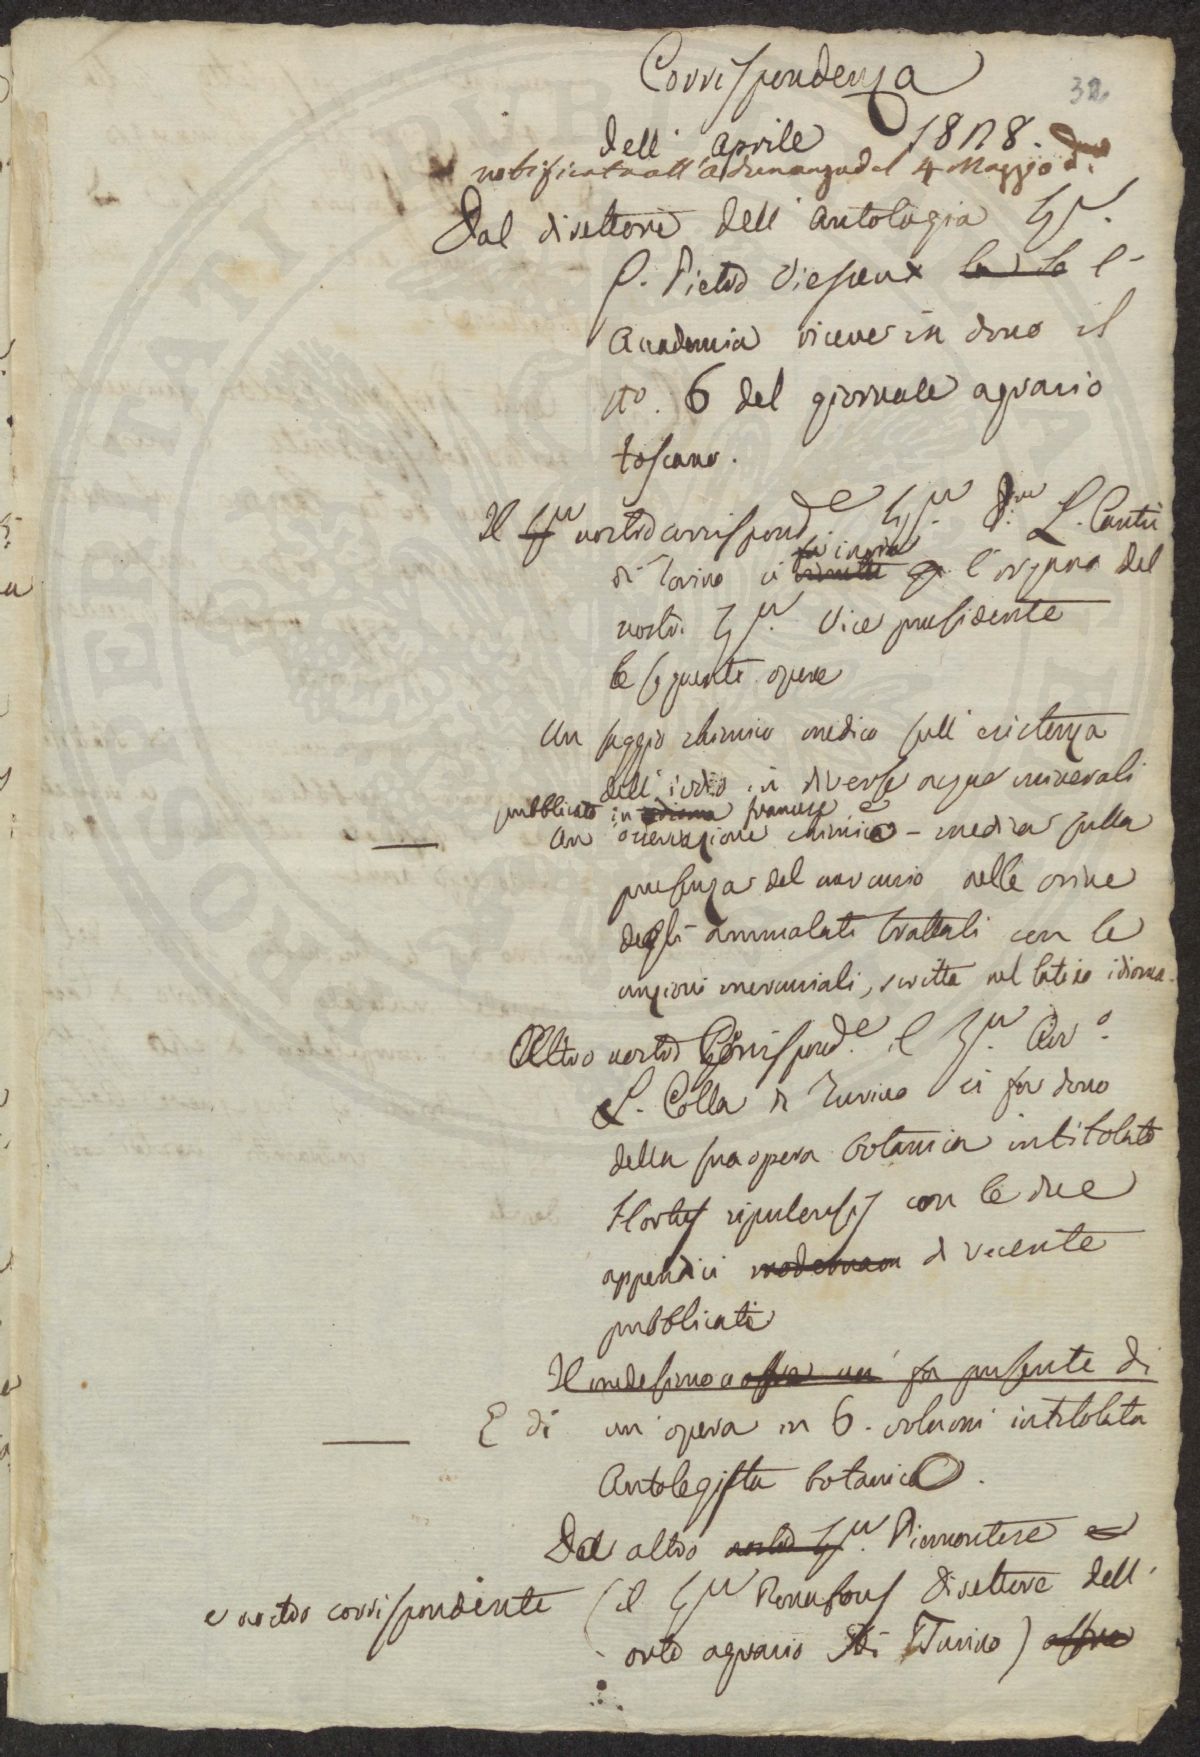 32
Corrispondenza
dell' Aprile 1828.
notificata all'Adunanza del 4 Maggio do.
Dal direttore dell' Antologia Sigr.
P. Pietro Viesseux l'
Accademia riceve in dono il
No. 6 del giornale agrario
toscano.
Il nostro corrisponde. Sigr. L. Cantù
di Torino ci fa invia l'organo del
nostr. Sigr. Vice presidente
le seguenti opere
Un saggio chimico medico sull' esistenza
dell' iodio in diverse acque minerali
pubblicato in idioma francese e
un' osservazione chimico-medica sulla
presenza del mercurio nelle orine
degli ammalati trattati con le
unzioni mercuriali, scritta nel latino idioma.
Altro nostro Corrisponde. il Sigr. Avo.
L. Colla di Turino ci fa dono
della sua opera botanica intitolata
Hortus ripulensis con le due
appendici di recente
pubblicate
Il medesimo fa presente di
E di un' opera in 6. volumi intitolata
Antolegista botanico.
Dal altro nostro Sigr. Piemontese
e nostro corrispondente (il Sigr Bonafous direttore dell'
orto agrario di Turino) offre